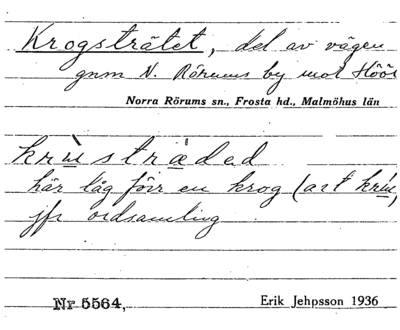 Krogsträtet, del av vägen
gnm N. Rörums by mot Höör
Norra Rörums sn., Frosta hd., Malmöhus län
kru̇sträded
här låg förr en krog (art kru̇)
jfr ordsamling
Nr 5564,
Erik Jehpsson 1936